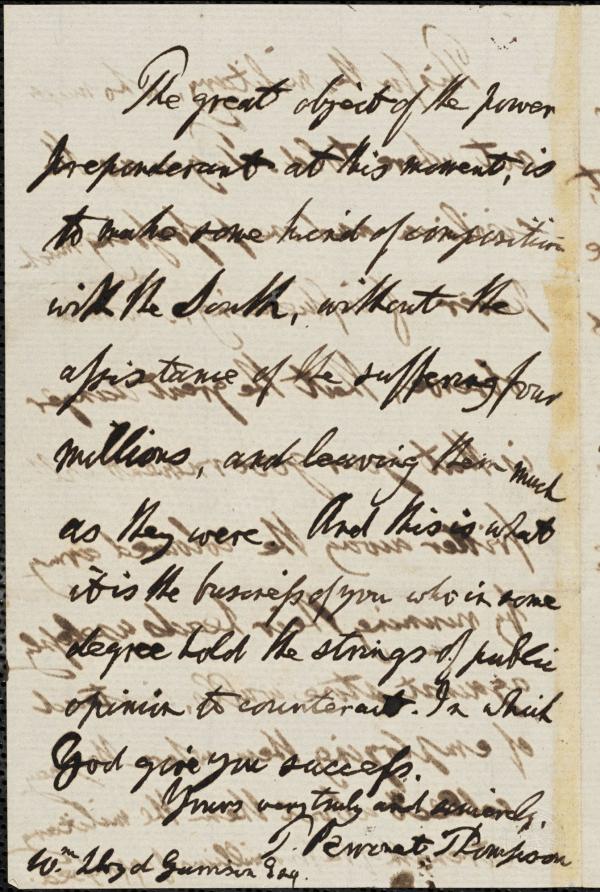 The great object of the power
preponderant at this moment, is
to make some kind of composition
with the South, without the
assistance of the suffering four
millions, and leaving them much
as they were. And this is what
it is the business of you who in some
degree hold the strings of public
opinion to counteract. In which
God give you success.
Yours very truly and sincerely,
T. Perronet Thompson
Wm. Lloyd Garrison Esq.